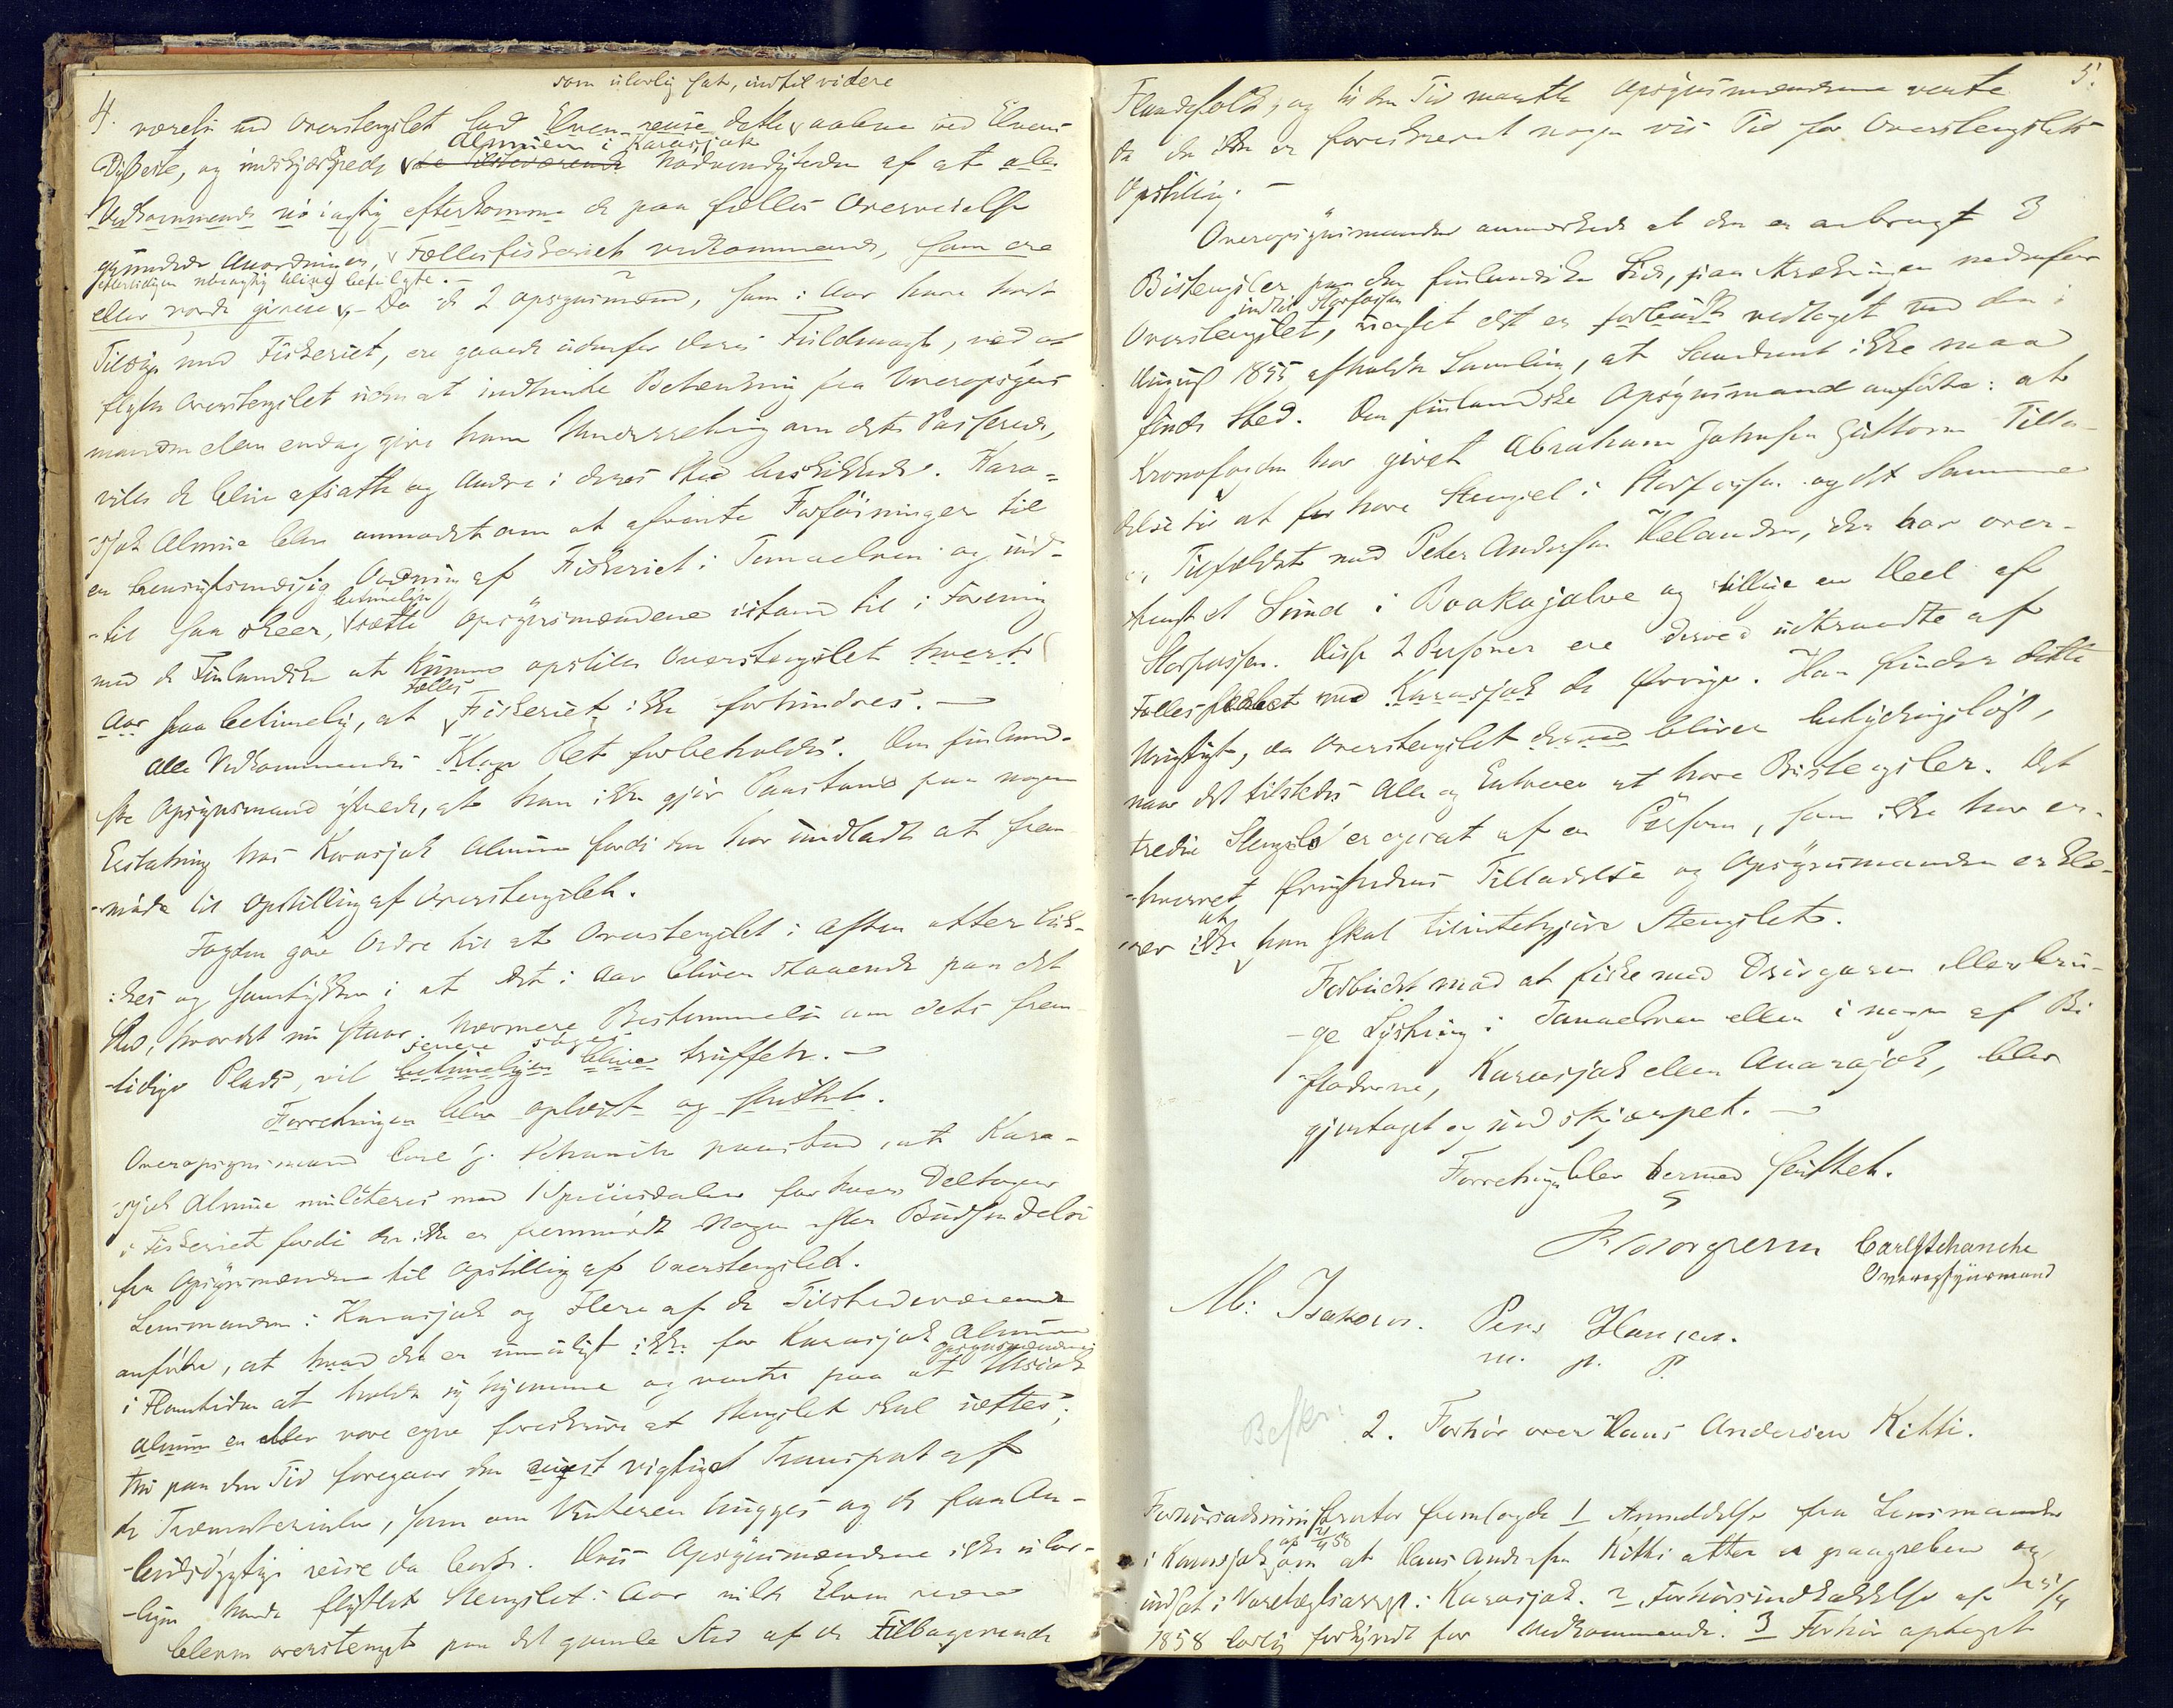 4.
som ulovlig sat, indtil videre
værelse med Overstengslet lod Elven reise dette aabne ved Elvens
Almuen i Karasjok
Dybeste, og indskjærpede de tilstedeværende Nødvendigheden af at alle
Vedkommende nøiagtig efterkomme de paa fælles Overveielse
grundede Anordninger, Fællesfiskeriet vedkommende, som ere
eftertiden nøiagtig blive befulgte.
eller vorde givne - Da de 2 Opsynsmænd, som i Aar have havt
Tilsyn med Fiskeriet, ere gaaede udenfor deres Fuldmagt, ved at
flytte Overstengslet uden at indhente Betænkning fra Overopsyns
manden eller endog give ham Underretning om det Passerede,
vilde de blive afsatte og Andre i deres Sted beskikkede. Kara-
sjok Almue blev anmodet om at afvente Forføininger til
en hensigtsmæssig Ordning af Fiskeriet i Tanaelven og ind-
betimelig
til saa skeer, sætte Opsynsmændene istand til i Forening
med de Finlandske at kunne opstille Overstengslet hvert
Fælles
Aar saa betimelig, at Fiskeriet ikke forhindres. -
Alle Vedkommendes Klage Ret forbeholdes. Den finland-
ske Opsynsmand ytrede, at han ikke gjør Paastand paa nogen
Erstatning hos Karasjok Almue fordi den har undladt at frem
møde til Opstilling af Overstengslet.
Fogden gav Ordre til at Overstengslet i Aften atter luk-
kes og samtykkede i at det i Aar bliver staaende paa det
Sted, hvor det nu staar. Nærmere Bestemmelse om dets frem
senere søges
tidige Plads, vil betimeligen blive truffet. -
Forretningen blev oplæst og sluttet.
Overopsynsmand Carl G. Schanche paastod, at Kara-
sjok Almue mulkteres med 1 Speciesdaler for hver Deltager
i Fiskeriet fordi der ikke er fremmødt Nogen efter Budsendelse
fra Opsynsmændene til Opstilling af Overstengslet.
Lensmanden i Karasjok og Flere af de Tilstedeværende
anførte, at hvad det er umuligt ikke for Karasjok Almue
Opsynsmændenes
i Flomtiden at holde sig hjemme og vente paa at
Almuen en eller vore egne foreskrive at Stengslet skal sættes;
thi paa den Tid foregaar den meget vigtige Transport af
de Træmaterialer, som om Vinteren hugges og de faa Ar-
beidsdygtige reise da bort. Hvis Opsynsmændene ikke ulov-
ligen havde flyttet Stengslet i Aar vilde Elven være
bleven overstengt paa det gamle Sted af de Tilbageværende
5.
Flaadefolk, og til den Tid maatte Opsynsmændene vente
da der ikke er foreskrevet nogen vis Tid for Overstengslets
Opstilling. -
Overopsynsmanden anmærkede at der er anbragt 3
Bistengsler paa den finlandske Side, paa Strækningen nedenfor
indtil Storfossen
Overstengslet, uagtet det er forbudt vedtaget ved den i
August 1855 afholdte Samling, at Saadant ikke maa
finde Sted. Den finlandske Opsynsmand anførte: at
Kronofogden har givet Abraham Johnsen Guttorm Tilla-
delse til at have Stengsel i Storfossen og det Samme
er Tilfældet med Peter Andersen Helander, der har over-
stengt et Sund i Bookajalve og tillige en Deel af
Storfossen. Disse 2 Personer ere derved udtraadte af
Fællesskabet med Karasjok de Øvrige. Han finder dette
Urigtigt, da Overstengslet derved bliver betydningsløst,
naar det tilstedes Alle og Enhver at have Bistengsler. Det
tredie Stengsel er opsat af en Person, som ikke har er-
hvervet Øvrighedens Tilladelse og Opsynsmanden erklæ-
at
rer han skal tilintetgjøre Stengslet.
Forbudet mod at fiske med Drivgarn eller bru-
ge Lystring i Tanaelven eller i nogen af Bi
floderne, Karasjok eller Anarajok, blev
gjentaget og indskjærpet. -
Forretningen blev dermed sluttet.
Carl G Schanche
Overopsynsmand
M: Isaksen. Pers Hansen.
m. p. P.
Beskr:
2. Forhør over Hans Andersen Kitti.
Forhørsadministrator fremlagde 1 Anmeldelse fra Lensmanden
af 21/4 58
i Karasjok om at Hans Andersen Kitti atter er paagreben og
indsat i Varetægtsarrest i Karasjok. 2, Forhørsindkaldelse af 25/4
1858 lovlig forkyndt for Vedkommende. 3 Forhør optaget